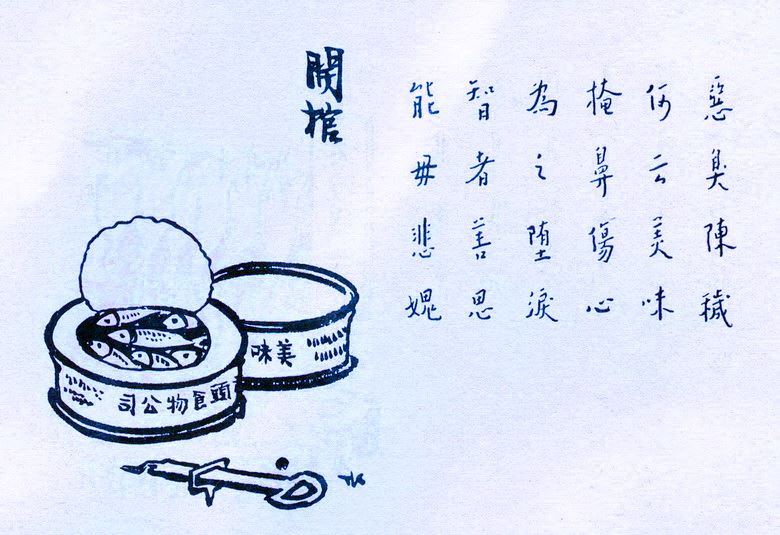 惡臭陳穢
何云美味
掩鼻傷心
為之堕淚
智者善思
能毋悲媿
開棺
美味
頭食物公司
TK